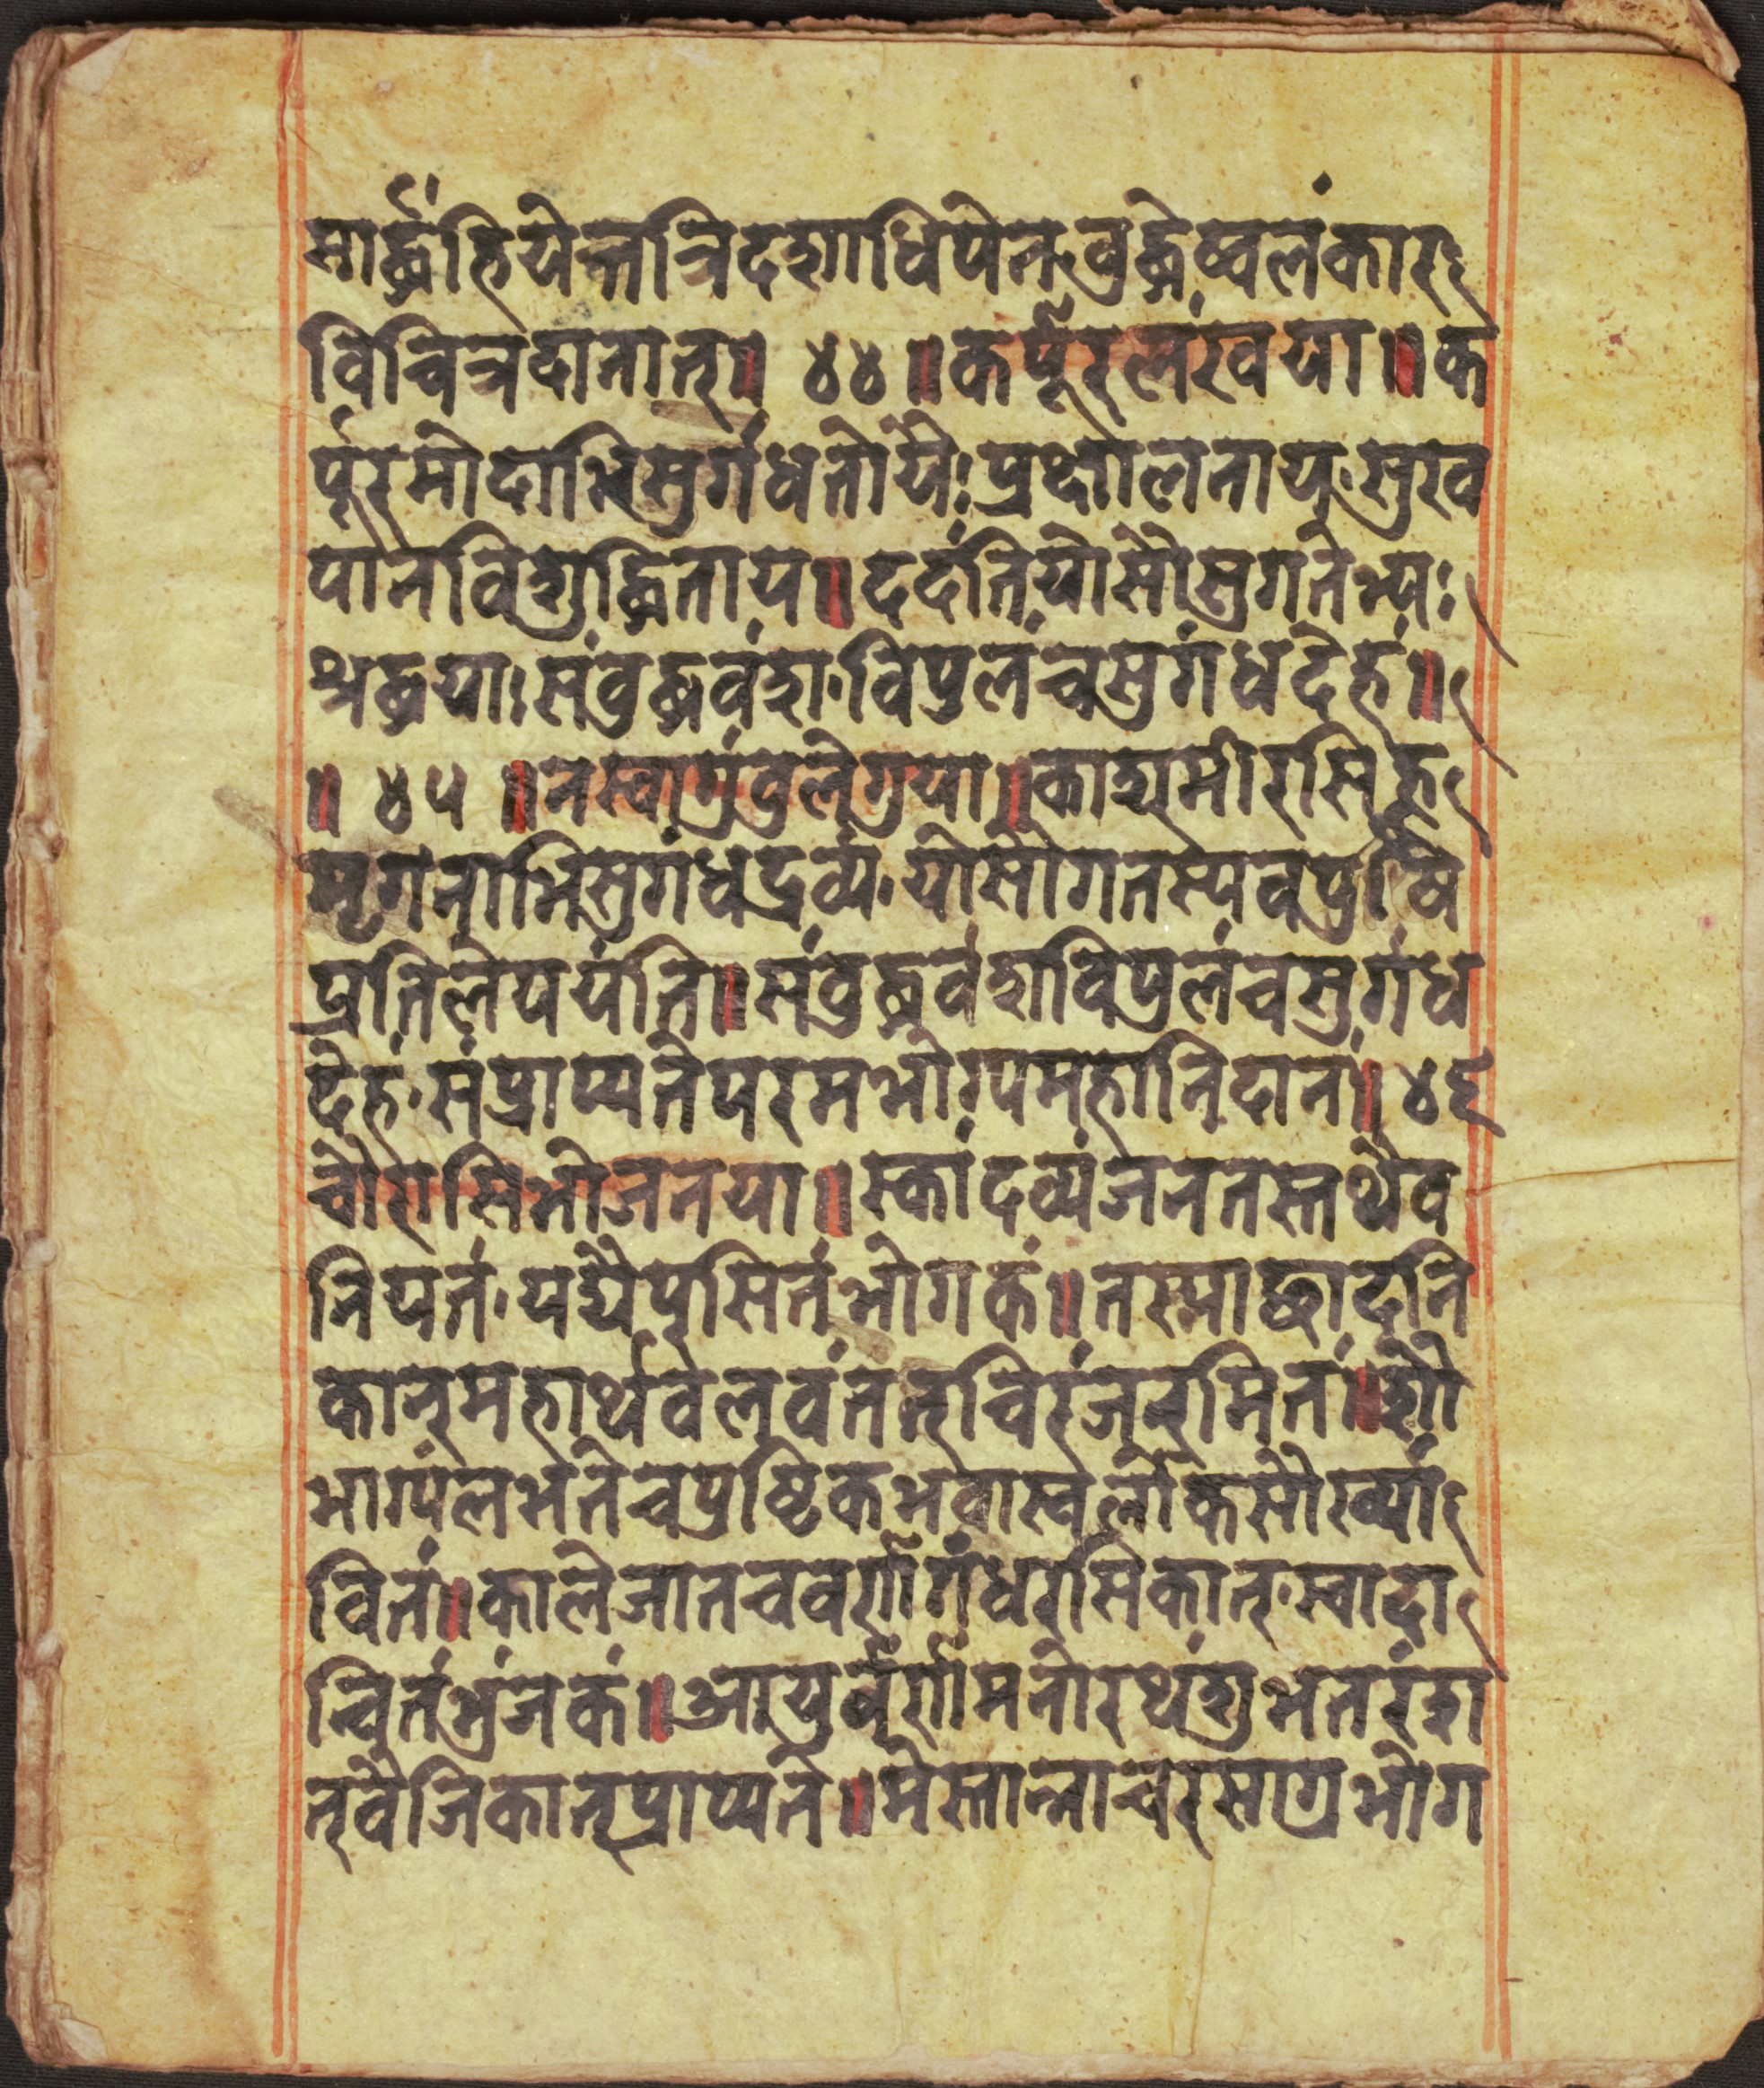 सार्द्धंहियेन्नत्रिदशाधिपेन,बुद्धेष्वलंकार
विचित्रदानात्॥ ४४ ॥कर्पूरलंखया॥क
र्पूरमोदाभिसुगंधतोयैः प्रक्षालनाय,सुख
पानविशुद्धिताय॥ददंतियोसौसुगतेभ्यः
श्रद्धया। संबुद्धवंशा,विपुलंचसुगंधदेहं॥
॥ ४५ ॥नस्वाग्रंवुलेगुया॥काश्मीरसिह्ल
मृगनाभिसुगंधद्रव्यं,योसौगतस्यवपुषि
प्रतिलेपयंति॥संबुद्धवंशविपुलंचसुगंध
देहं,संप्राप्यतेपरमभोग्यमहानिदानं॥४६
चौरासिभोजनया॥स्कांदव्यंजनतस्तथैव
नियतं,यद्यैपुसितंभोगकं॥तस्माद्धादनि
कान्महार्थवलवंतत्चिरंजन्मितं॥शौ
भाग्यंलभतेचपुष्टिकभवास्वर्लोकसौख्यां
वितं॥कालेजातचवर्णगंधरसिकात्,स्वादा
न्वितंभुंजकं॥आयुर्वर्णमनोरथंशुभतरंशा
त्वैजिकान्प्राप्यते॥मेस्तान्नाचरसाग्रभोग